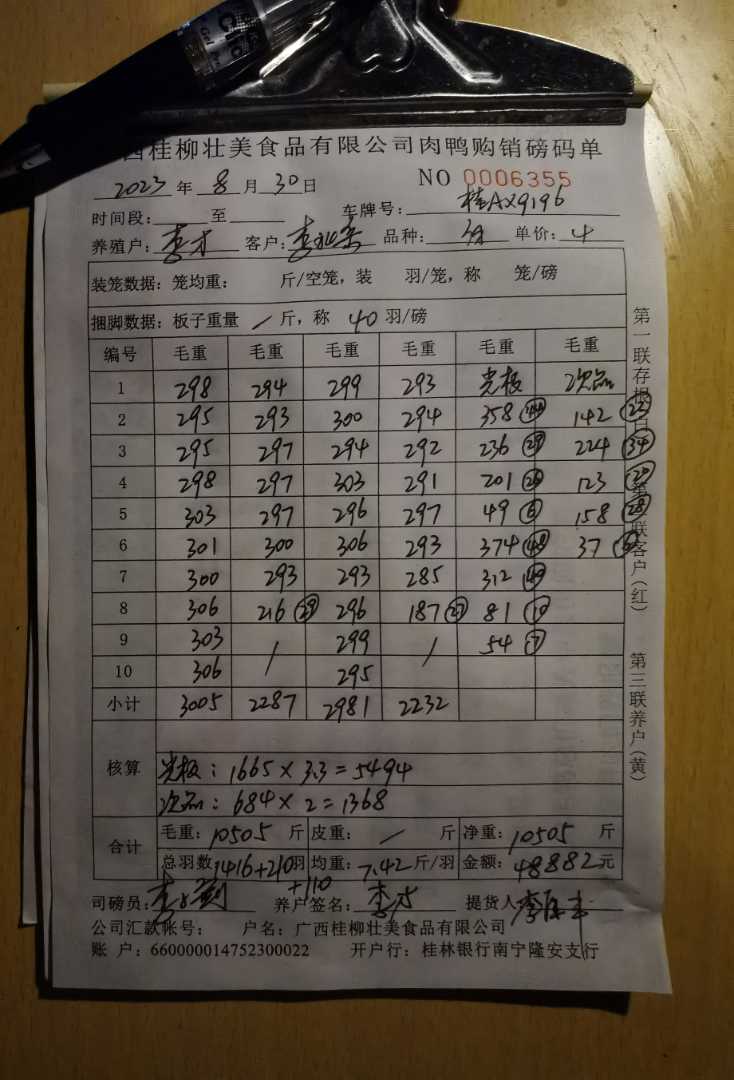 西桂柳壮美食品有限公司肉鸭购销磅码单
2023 年 8 月 30 日 NO 0006355
时间段: 至 车牌号: 桂AX9196
养殖户: 李才 客户: 李 品种: 单价: 4
装笼数据: 笼均重: 斤/空笼, 装 羽/笼, 称 笼/磅
捆脚数据: 板子重量 / 斤, 称 40 羽/磅
编号 毛重 毛重 毛重 毛重 毛重 毛重
1 298 294 299 293 光板 次品
2 295 293 300 294 358 142 23
3 295 297 294 292 236 29 224 34
4 298 297 303 291 201 26 123 20
5 303 297 296 297 49 6 158 28
6 301 300 306 293 374 48 37
7 300 293 293 285 312
8 306 216 29 296 187 27 81 10
9 303 / 299 / 54 7
10 306 295
小计 3005 2287 2981 2232
核算 光板: 1665 × 3.3 = 5494
次品: 684 × 2 = 1368
合计 毛重: 10505 斤 皮重: / 斤 净重: 10505 斤
总羽数 1416+210 羽 均重: 7.42 斤/羽 金额: 48882 元
+110
司磅员: 李 养户签名: 李才 提货人 李
公司汇款帐号: 户名: 广西桂柳壮美食品有限公司
账 户: 660000014752300022 开户行: 桂林银行南宁隆安支行
第一联存根
第二联客户(红)
第三联养户(黄)